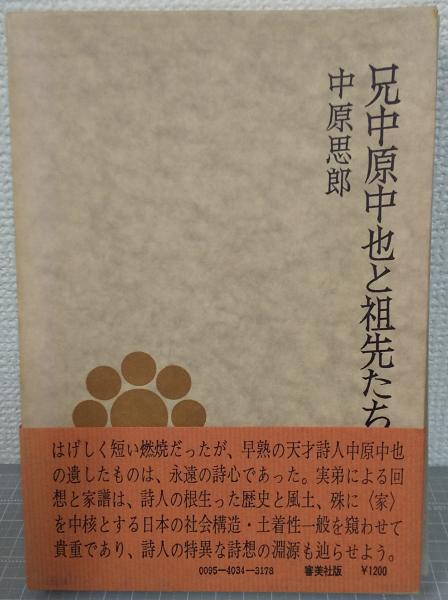 兄中原中也と祖先たち
中原思郎
はげしく短い燃焼だったが、早熟の天才詩人中原中也
の遺したものは、永遠の詩心であった。実弟による回
想と家譜は、詩人の根生った歴史と風土、殊に〈家〉
を中核とする日本の社会構造・土着性一般を窺わせて
貴重であり、詩人の特異な詩想の淵源も辿らせよう。
0095-4034-3178 審美社版 ¥1200